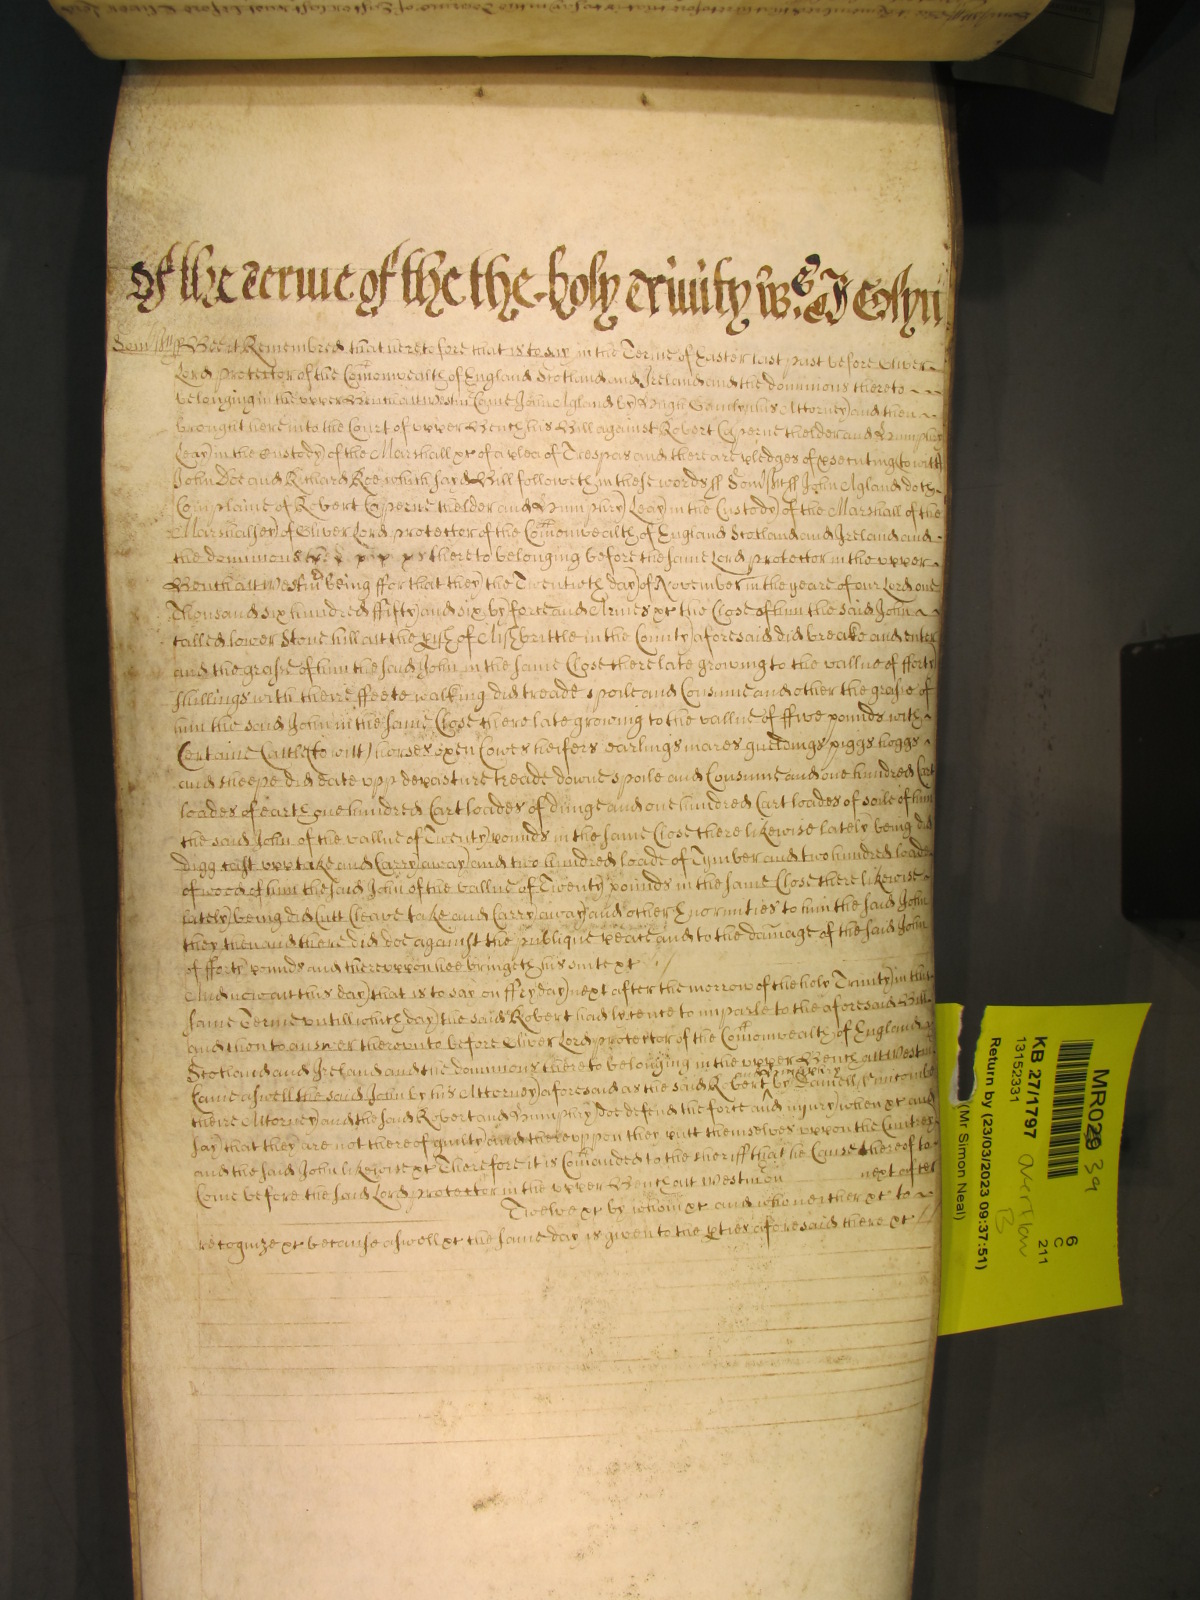 Of the terme of the the holy Trinity
Somsett ss Bee it Remembred that heretofore that is to say in the Terme of Easter last past before Oliver
Lord protector of the Comonwealth of England Scotland and Ireland and the dominions thereto
belonging in the upper Bench att Westm Came John Agland by Hugh his Attorney and then
brought here into the Court of upper Bench his Bill against Robert Caperne thelder and Humphry
Leay in the Custody of the Marshall &c of a plea of Trespas and there are pledges of prsecuting to witt
John Doe and Richard Roe which sayd Bill followeth in these words ss Somsett ss John Agland doth
Complaine of Robert Caperne thelder and Humphry Leay in the Custody of the Marshall of the
Marshalsey of Oliver Lord protector of the Comonwealth of England Scotland and Ireland and
the dominions thereto belonging before the same Lord protector in the upper
Bench att Westm being ffor that they the Twentieth day of November in the yeare of our Lord one
Thousand six hundred ffifty and six by force and Armes &c the Close of him the said John
called lower Stone hill att the pish of Aishbrittle in the County aforesaid did breake and enter
and the grasse of him the said John in the same Close there late growing to the vallue of fforty
shillings with theire ffeete walking did treade spoile and Consume and other the grasse of
him the said John in the same Close there late growing to the vallue of ffive pounds with
Certaine Cattle (to witt) horses oxen Cowes heifers earlings mares gueldings piggs hoggs
and sheepe did eate upp depasture treade downe spoile and Consume and one hundred Cart
loades of earth one hundred Cart loades of dunge and one hundred Cart loades of soile of him
the said John of the vallue of Twenty pounds in the same Close there likewise lately being did
digg cast upp take and Carry away and two hundred loade of Tymber and two hundred loade
of wood of him the said John of the vallue of Twenty pounds in the same Close there likewise
lately being did Cutt Cleave take and Carry away and other Enormities to him the said John
they then and there did doe against the publique peace and to the damage of the said John
of fforty pounds and thereuppon hee bringeth his suite &c
And now att this day that is to say on ffryday next after the morrow of the holy Trinity in this
same Terme untill which day the said Robert had lycence to imparle to the aforesaid Bill
and then to answer thereunto before Oliver Lord protector of the Comonwealth of England
Scotland and Ireland and the dominions thereto belonging in the upper Bench att Westm
Came aswell the said John by his Attorney aforesaid as the said Robert and Humphry by Daniell
theire Attorney and the said Robert and Humphry doe defend the force and injury when &c and
say that they are not thereof guilty and thereuppon they putt themselves uppon the Cuntrey
and the said John likewise &c Therefore it is Comanded to the sheriff that he Cause thereof to
Come before the said Lord protector in the upper Bench att Westm on next after
Twelve &c by whom &c and who neither &c to
recognize &c because aswell &c the same day is given to the pties aforesaid there &c
MR029 39
KB 27/1797
13152331
Return by (23/03/2023 09:37:51)
(Mr Simon Neal)
overflow
B
6
C
211